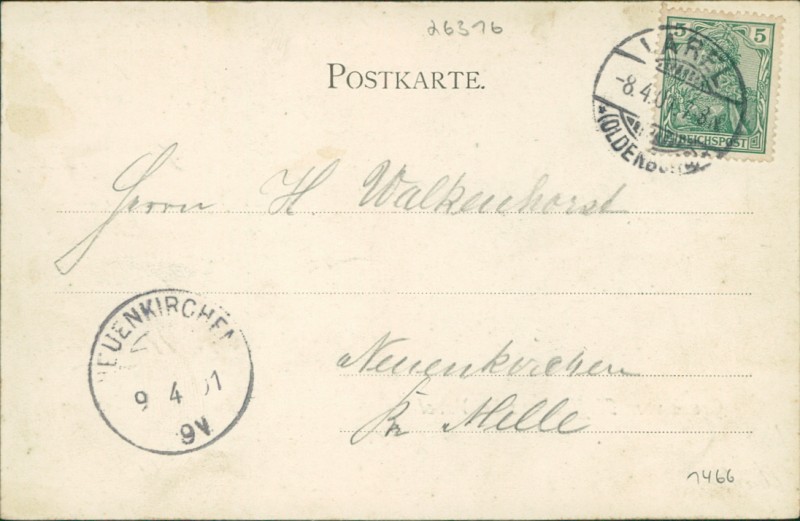 26316
POSTKARTE.
5 5
REICHSPOST
-8.4.01
(OLDENBURG)
Herrn H Walkenhorst
NEUENKIRCHEN
9 4 01
9V
Neuenkirchen
Kr Melle
1466